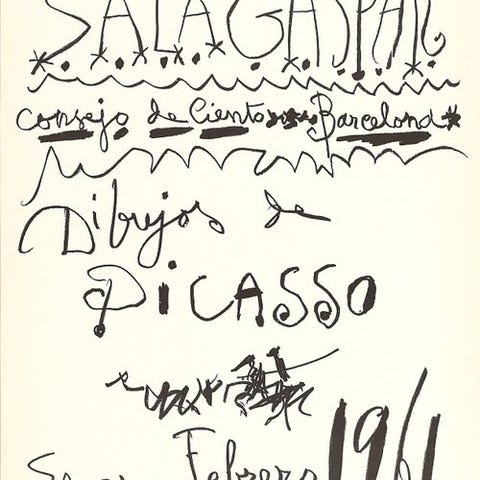 SALA GASPAR
Consejo de Ciento Barcelona
Dibujos de
PICASSO
Febrero 1961